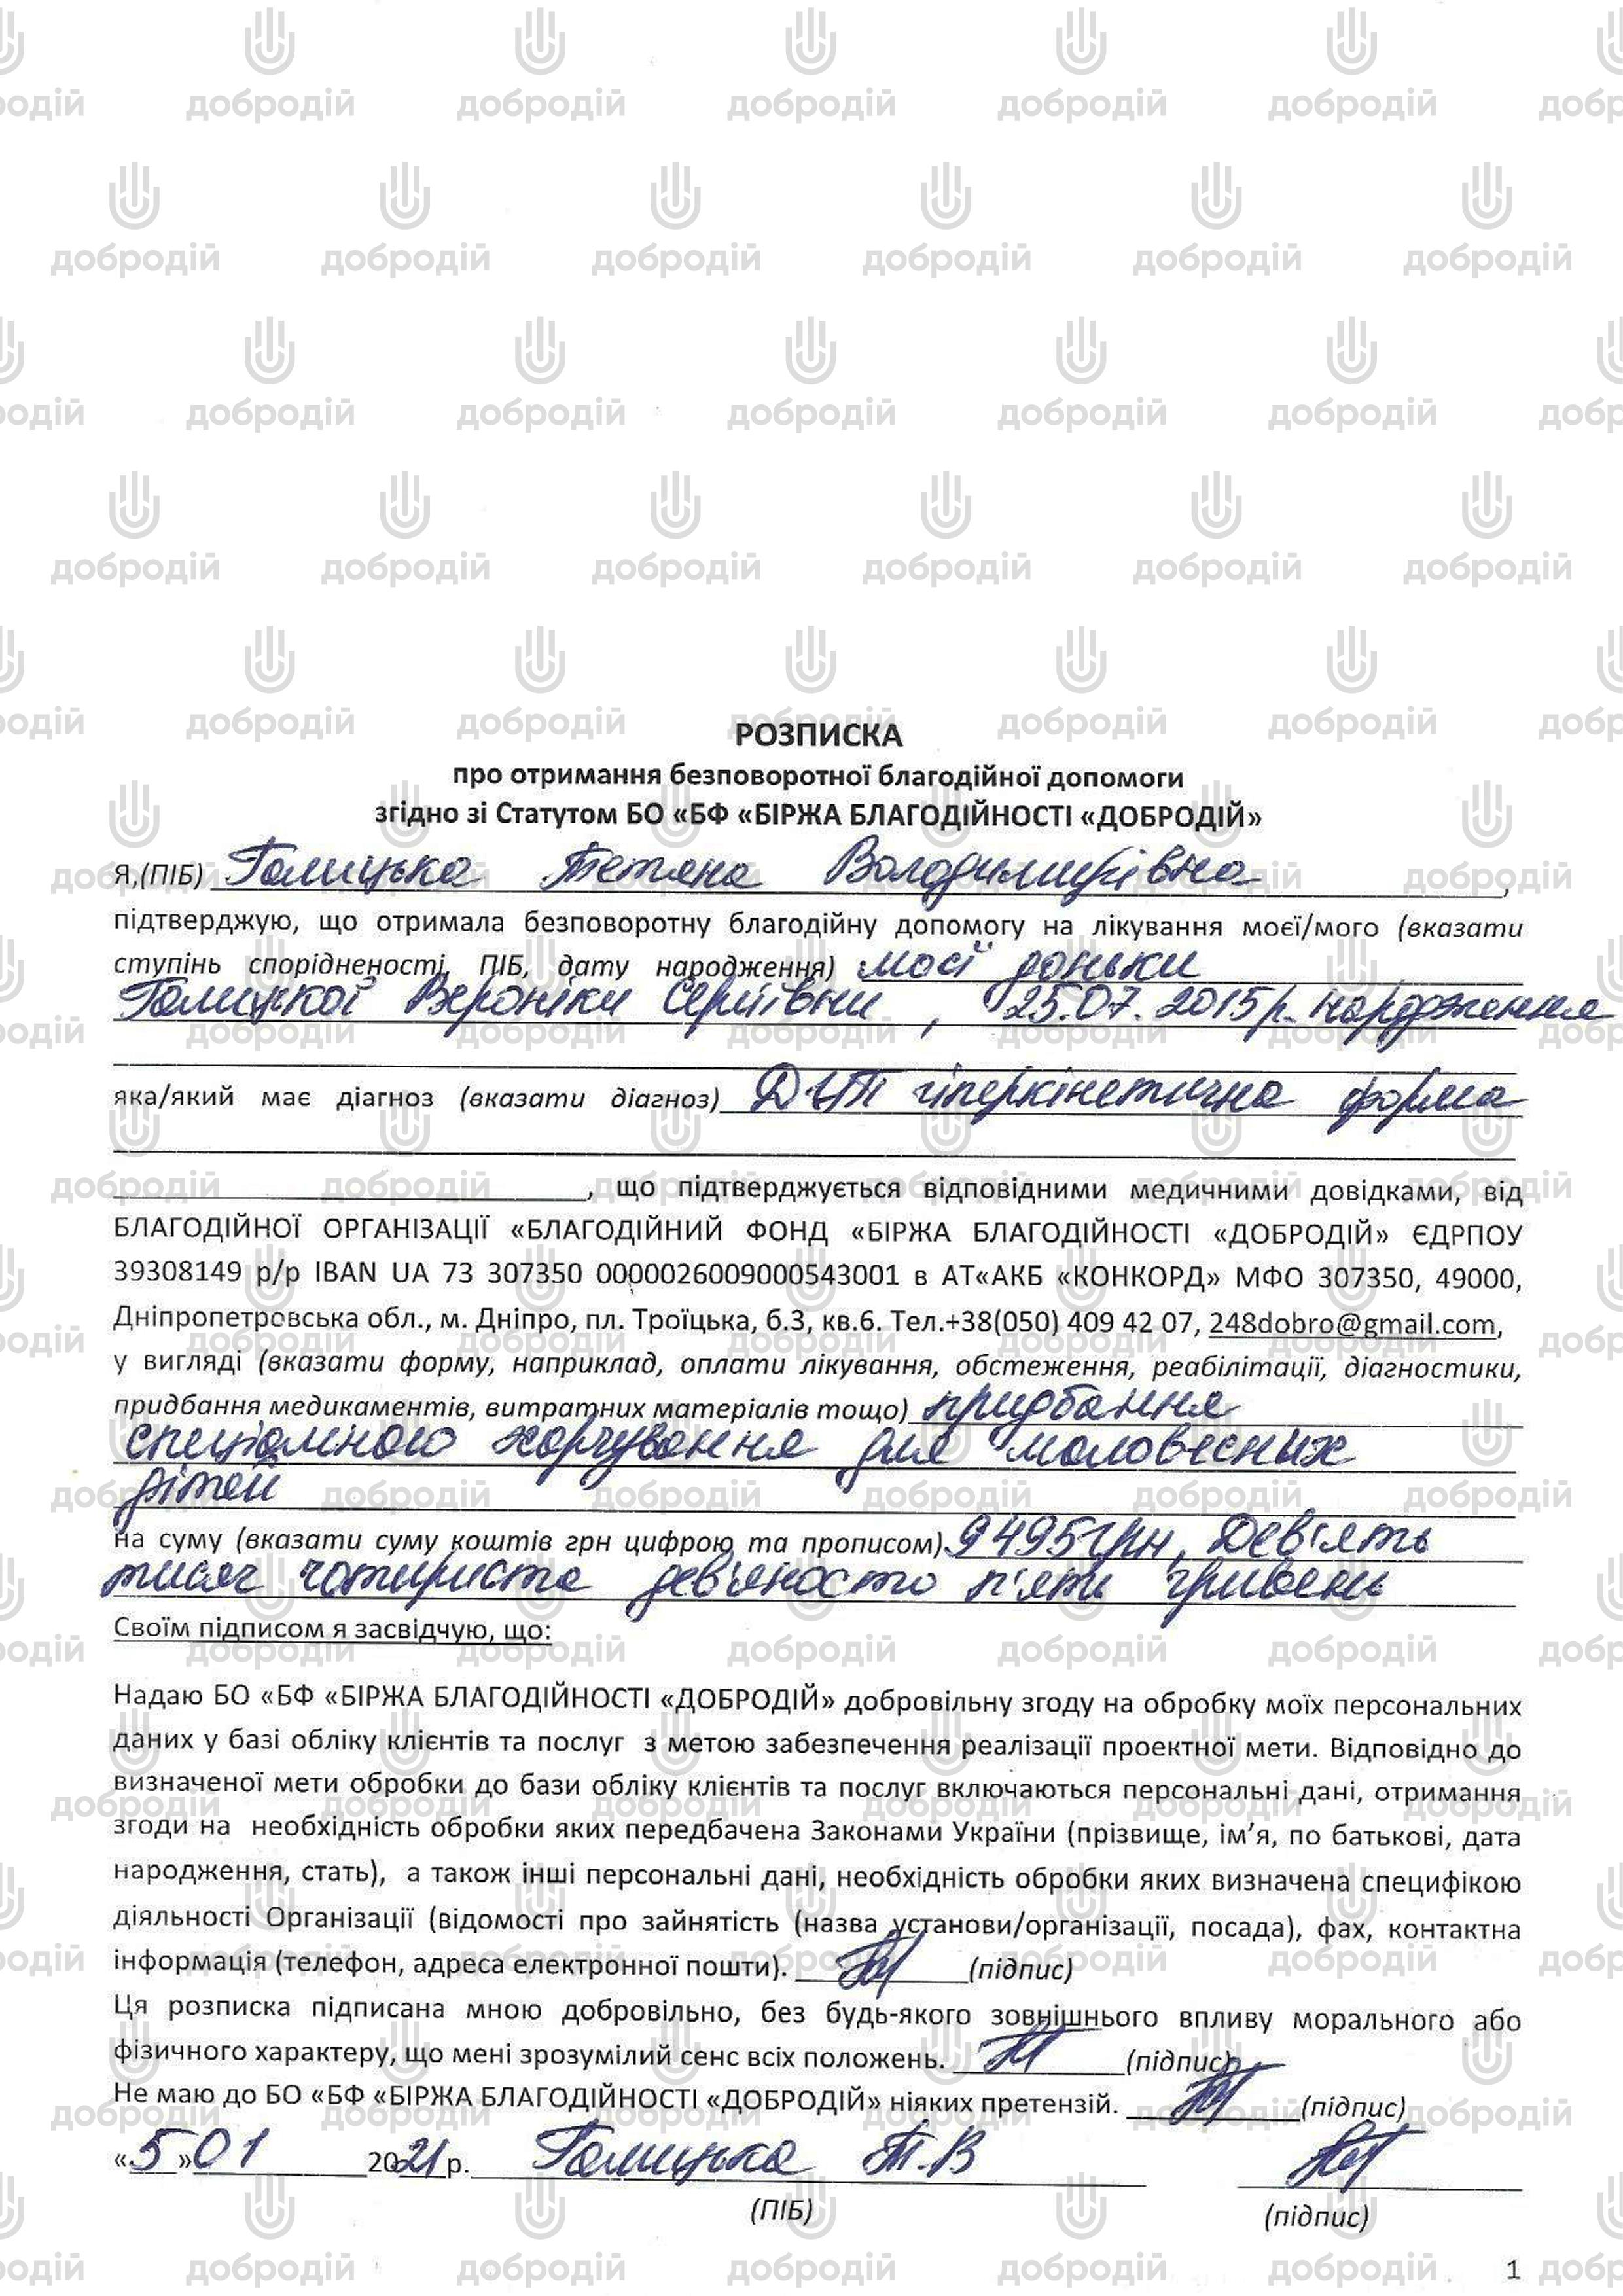 РОЗПИСКА
про отримання безповоротної благодійної допомоги
згідно зі Статутом БО «БФ «БІРЖА БЛАГОДІЙНОСТІ «ДОБРОДІЙ»
Я,(ПІБ) Галицька Тетяна Володимирівна,
підтверджую, що отримала безповоротну благодійну допомогу на лікування моєї/мого (вказати
ступінь спорідненості, ПІБ, дату народження) моєї доньки
Галицької Вероніки Сергіївни, 25.07.2015р. народження
яка/який має діагноз (вказати діагноз) ДЦП гіперкінетична форма
, що підтверджується відповідними медичними довідками, від
БЛАГОДІЙНОЇ ОРГАНІЗАЦІЇ «БЛАГОДІЙНИЙ ФОНД «БІРЖА БЛАГОДІЙНОСТІ «ДОБРОДІЙ» ЄДРПОУ
39308149 р/р IBAN UA 73 307350 0000026009000543001 в АТ«АКБ «КОНКОРД» МФО 307350, 49000,
Дніпропетровська обл., м. Дніпро, пл. Троїцька, б.3, кв.6. Тел.+38(050) 409 42 07, 248dobro@gmail.com,
у вигляді (вказати форму, наприклад, оплати лікування, обстеження, реабілітації, діагностики,
придбання медикаментів, витратних матеріалів тощо) придбання
спеціального харчування для маловісних
дітей
на суму (вказати суму коштів грн цифрою та прописом) 9495грн, Дев'ять
тисяч чотириста дев'яносто п'яти гривень
Своїм підписом я засвідчую, що:
Надаю БО «БФ «БІРЖА БЛАГОДІЙНОСТІ «ДОБРОДІЙ» добровільну згоду на обробку моїх персональних
даних у базі обліку клієнтів та послуг з метою забезпечення реалізації проектної мети. Відповідно до
визначеної мети обробки до бази обліку клієнтів та послуг включаються персональні дані, отримання
згоди на необхідність обробки яких передбачена Законами України (прізвище, ім’я, по батькові, дата
народження, стать), а також інші персональні дані, необхідність обробки яких визначена специфікою
діяльності Організації (відомості про зайнятість (назва установи/організації, посада), фах, контактна
інформація (телефон, адреса електронної пошти). (підпис)
Ця розписка підписана мною добровільно, без будь-якого зовнішнього впливу морального або
фізичного характеру, що мені зрозумілий сенс всіх положень. (підпис)
Не маю до БО «БФ «БІРЖА БЛАГОДІЙНОСТІ «ДОБРОДІЙ» ніяких претензій. (підпис)
«5» 01 2021р. Галицька Т.В
(ПІБ) (підпис)
1